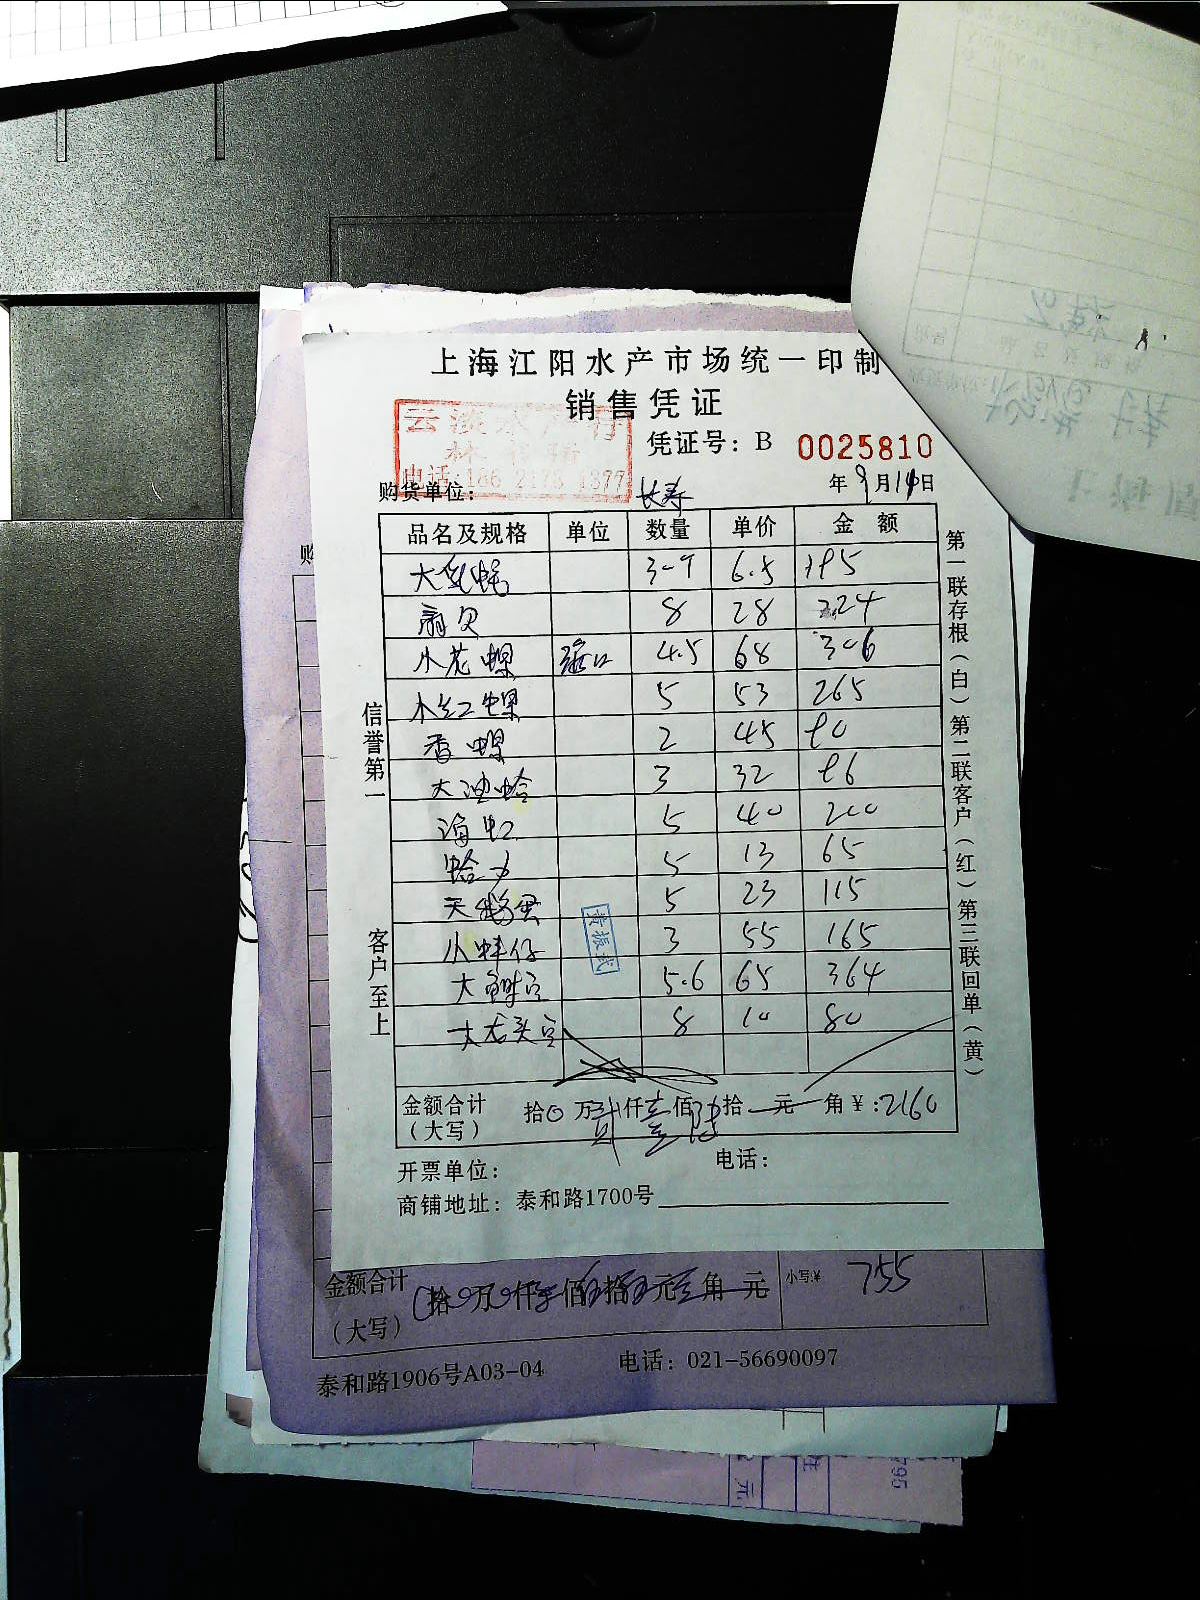 上海江阳水产市场统一印制
销售凭证
云淡水产行
凭证号：B 0025810
电话:186 2173 1377
购货单位： 长寿 年 9 月 14 日
品名及规格 单位 数量 单价 金额
大生蚝 30 6.5 195
扇贝 8 28 224
小花螺 4.5 68 306
小红螺 5 53 265
香螺 2 45 90
大油蛤 3 32 96
海虹 5 40 200
蛤 5 13 65
天鹅蛋 5 23 115
小蚌仔 3 55 165
大鲜 5.6 65 364
大 头 8 10 80
黄振武
金额合计（大写） 拾0万贰仟壹佰陆拾元角￥:2160
开票单位： 电话：
商铺地址：泰和路1700号
信誉第一 客户至上
第一联存根（白）第二联客户（红）第三联回单（黄）
金额合计（大写） 拾 万 仟 佰 拾 元 角 元 小写:¥ 755
泰和路1906号A03-04 电话：021-56690097
795
元